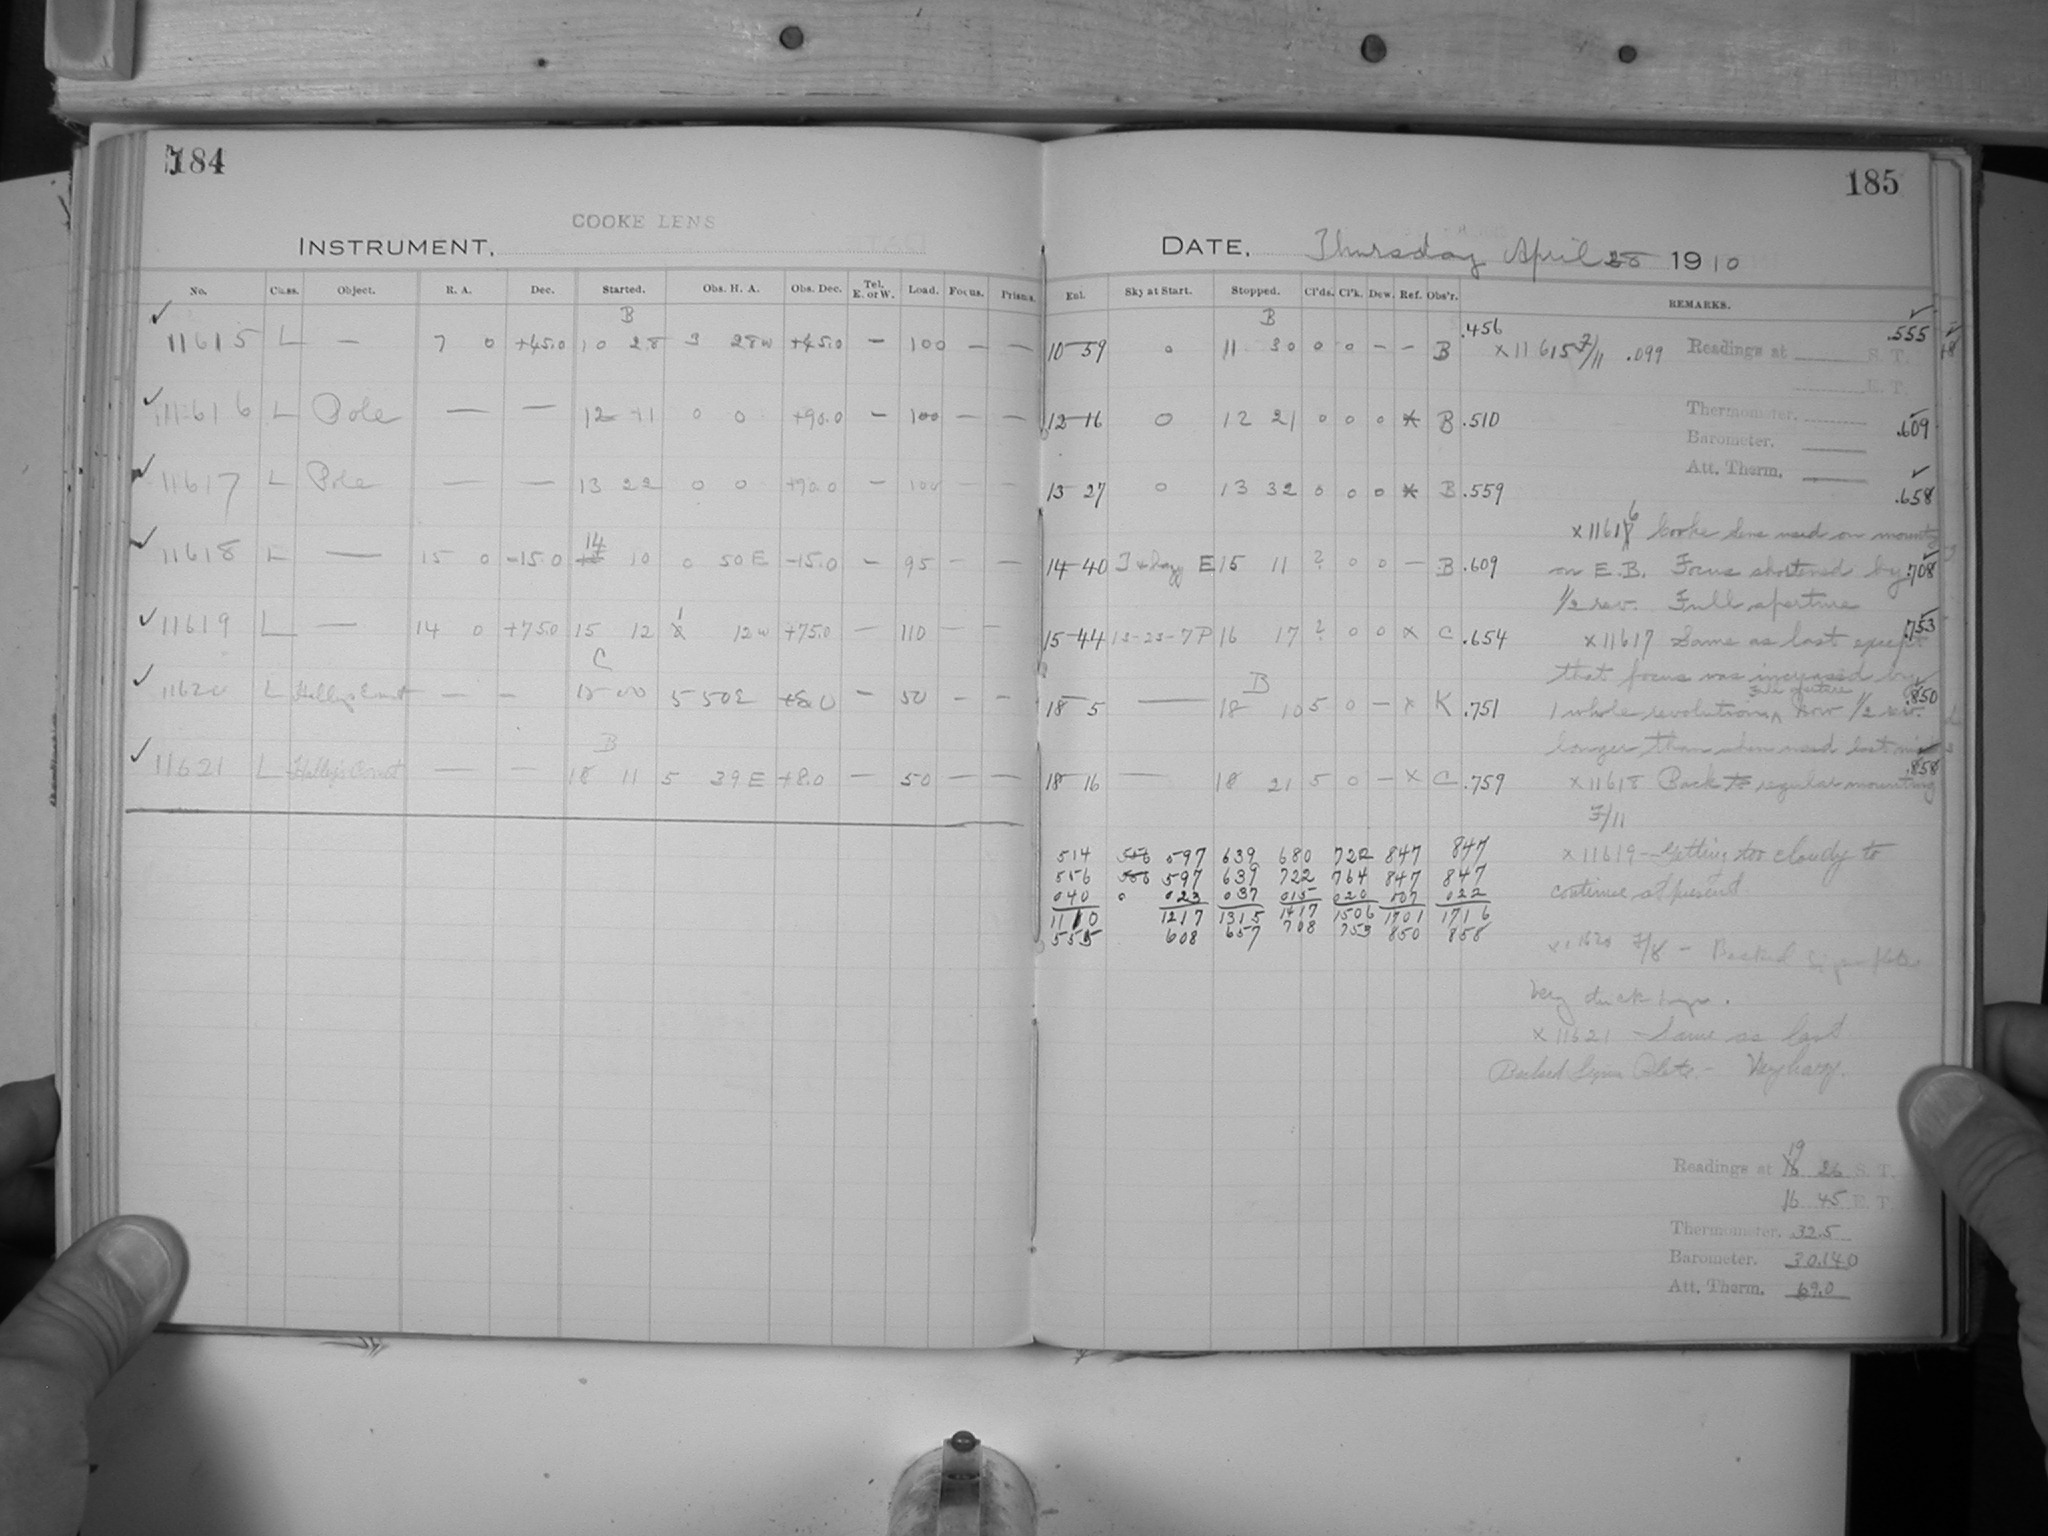 184
COOKE LENS
INSTRUMENT.
No. Class. Object. R. A. Dec. Started. Obs. H. A. Obs. Dec. Tel. E. or W. Load. Focus. Prisms.
B
11615 L — 7 0 +45.0 10 28 3 28w +45.0 — 100 — —
11616 L Pole — — 12 11 0 0 +90.0 — 100 — —
11617 L Pole — — 13 22 0 0 +90.0 — 100 — —
14
11618 L — 15 0 -15.0 10 0 50 E -15.0 — 95 — —
11619 L — 14 0 +75.0 15 12 1 12w +75.0 — 110 — —
C
11620 L — — 18 00 5 50E +8.0 — 50 — —
B
11621 L — — 18 11 5 39 E +8.0 — 50 — —
185
DATE. Thursday April 28 1910
Exl. Sky at Start. Stopped. Cl'ds. Cl'k. Dew. Ref. Obs'r. REMARKS.
B
10-59 0 11 30 0 0 — — B .456 x 11615 F/11 .099 .555
Readings at S. T.
E. T.
Thermometer.
12-16 0 12 21 0 0 0 * B .510 .609
Barometer.
Att. Therm.
13 27 0 13 32 0 0 0 * B .559 .658
x 11616 Cooke lens used on mounting
14-40 E 15 11 ? 0 0 — B .609 on E.B. Focus shortened by .708
1/2 rev. Full aperture
15-44 13-23-7P 16 17 ? 0 0 x C .654 x 11617 Same as last except .753
that focus was increased by
B
Full aperture
18 5 — 18 10 5 0 — x K .751 1 whole revolution, now 1/2 rev. .850
longer than when used last
18 16 — 18 21 5 0 — x C .759 x 11618 Back to regular mounting .858
F/11
514 597 639 680 722 847 847
x 11619 — Getting too cloudy to
556 597 639 722 764 847 847
continue at present.
040 0 023 037 015 020 007 022
1110 1217 1315 1417 1506 1701 1716
555 608 657 708 753 850 858
x 11620 F/8 — Backed
Very thick haze.
x 11621 — Same as last
Backed Plate. — Very hazy.
Readings at 19 26 S. T.
16 45 E. T.
Thermometer. 32.5
Barometer. 30.140
Att. Therm. 69.0